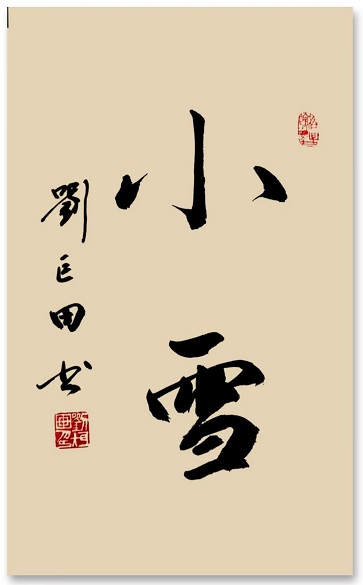 小雪
劉巨田书